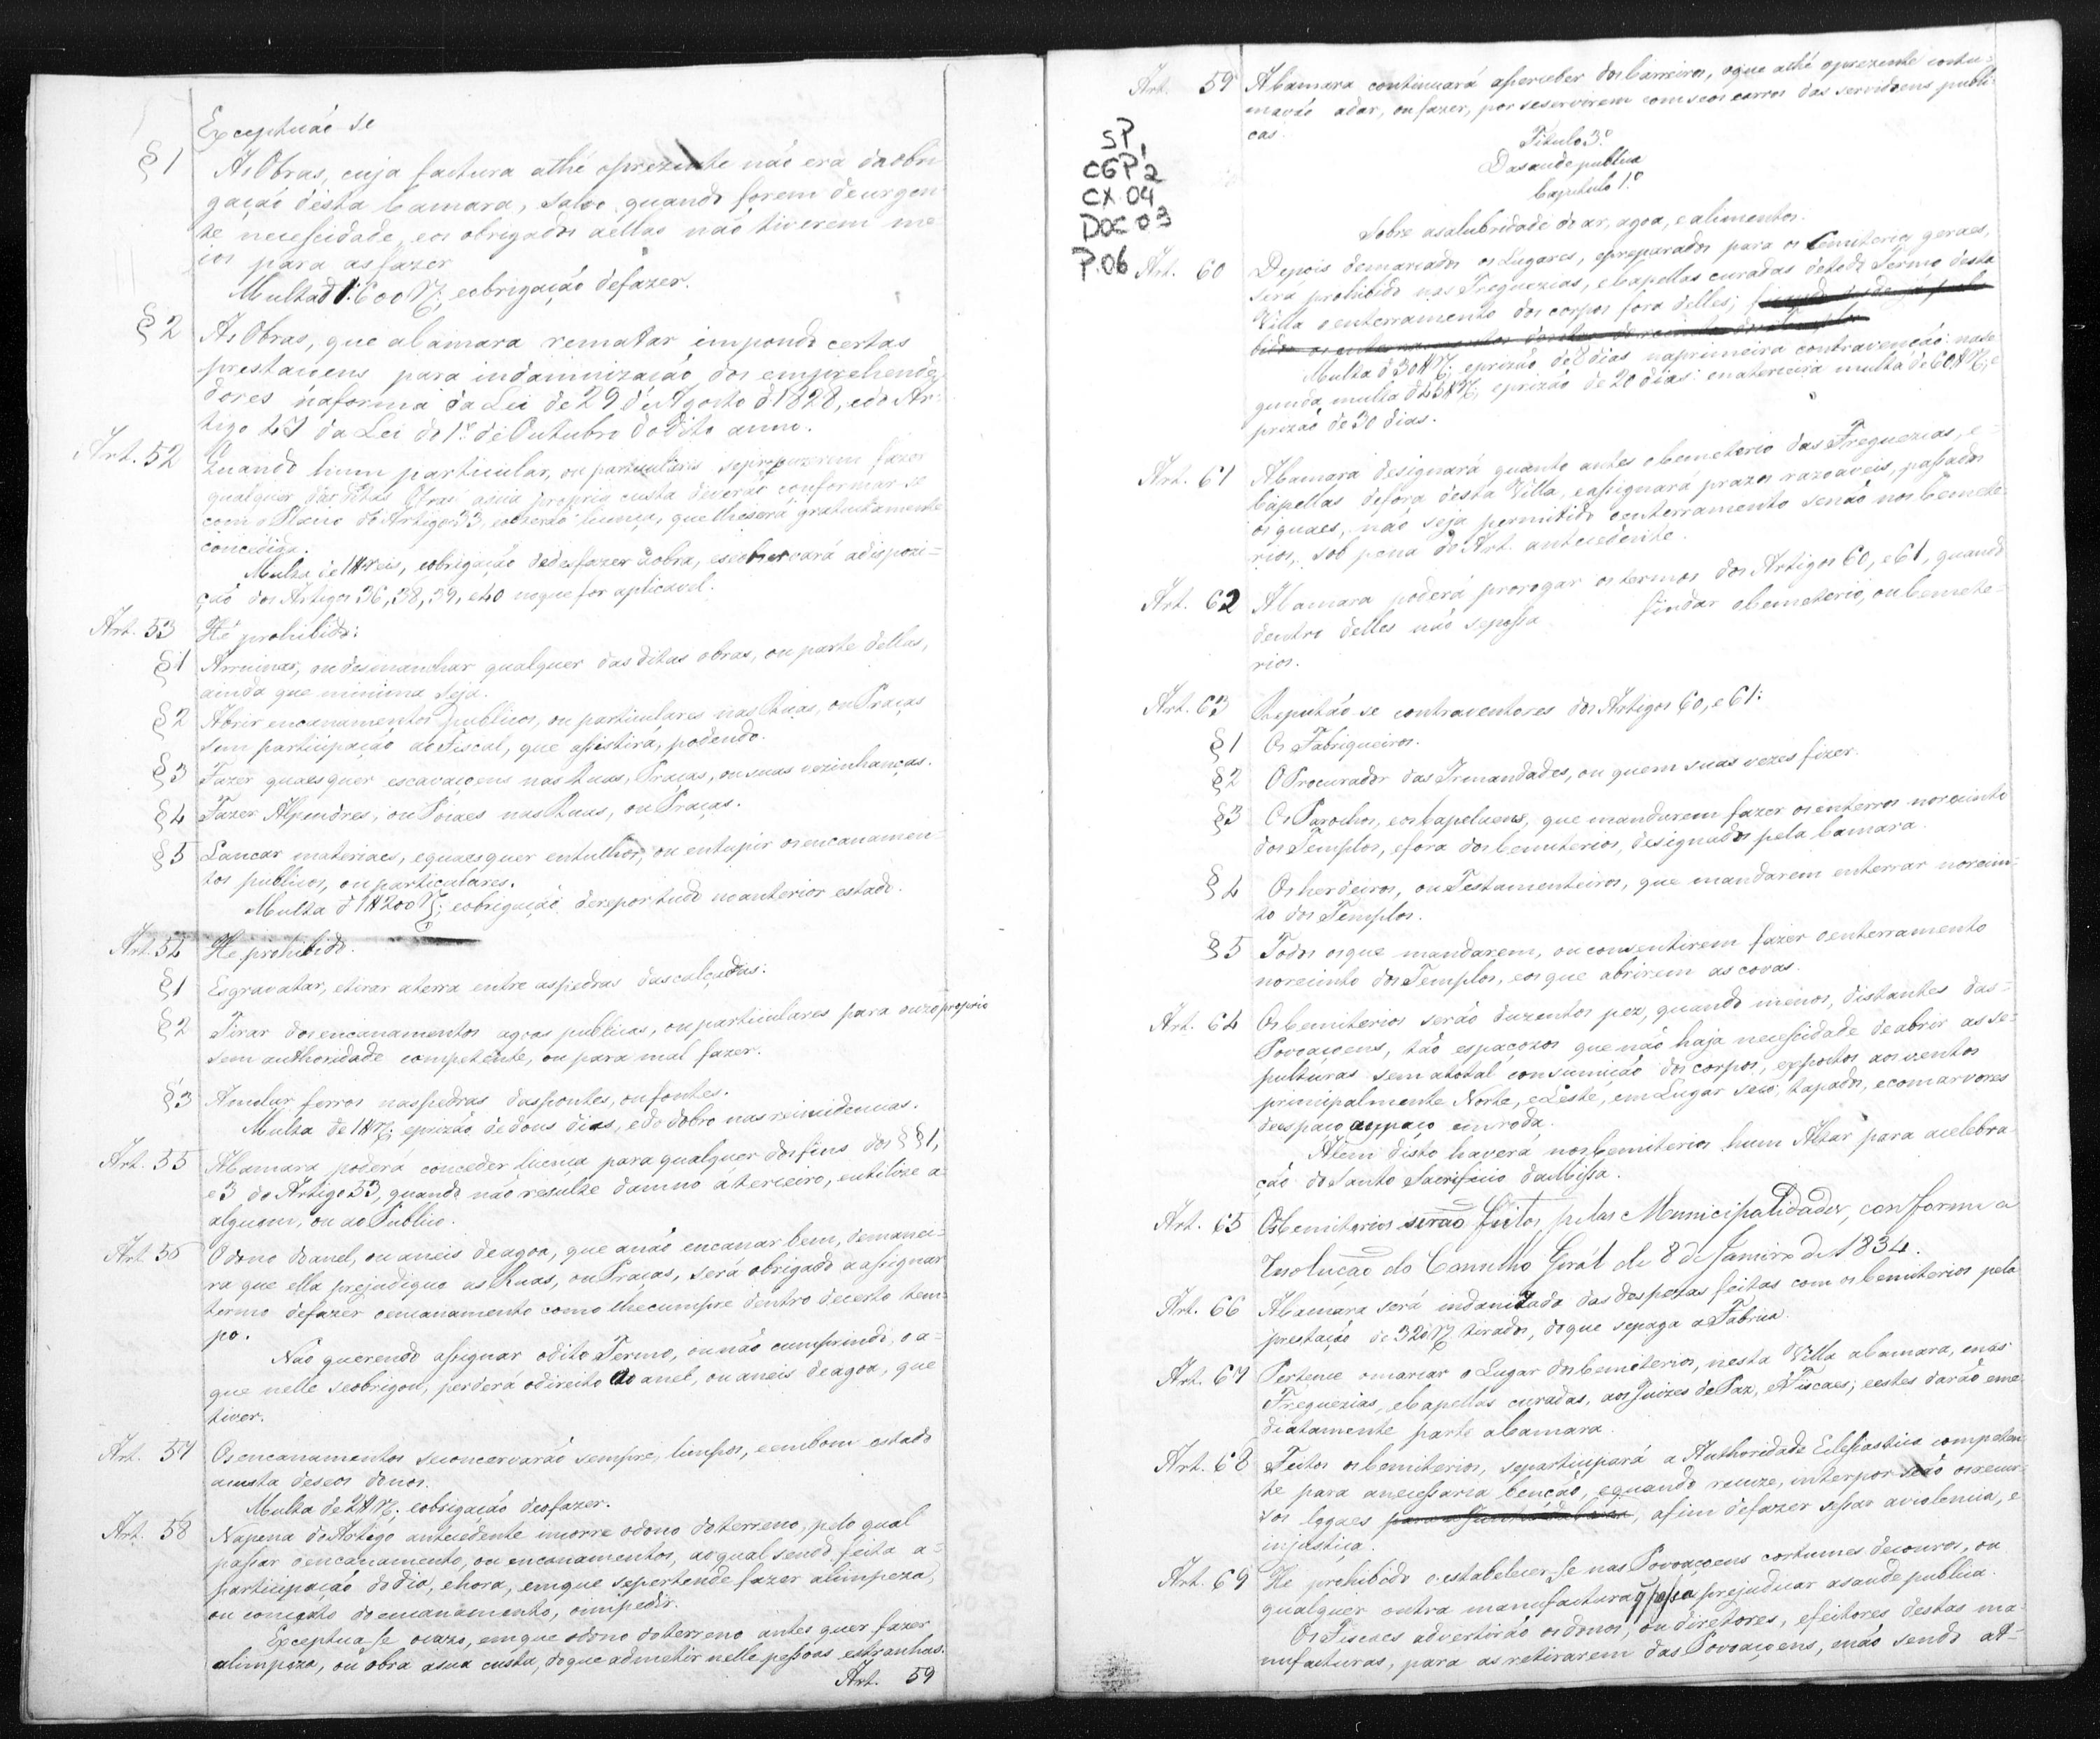 Exceptuáo se
§ 1 As Obras, cuja factura athé oprezente não era daobri
gação désta Camara, salvo quando forem deurgen
te necescidade, eos obrigados aellas não tiverem me
ios para asfazer
Multa d 1:600 rs; eobrigação defazer.
§ 2 As Obras, que aCamara rematar impondo certas
prestaçoens para indaminização dos emprehende
dores náforma da Lei de 29 de Agosto d'1828, edo Ar
tigo 47 da Lei do 1º de Outubro do dito anno.
Art. 52 Quando hum particular, ou particulares sepropuzerem fazer
qualquer das ditas Obras asua propria custa deverão conformar-se
com o Plano do Artigo 33, licença, quelheserá gratuitamente
concedida.
Multa de 1#reis, eobrigação dedesfazer aobra, eseobservará adispozi=
ção dos Artigos 36, 38, 39, e40 noque for aplicavel.
Art. 53 Hé prohibido:
§1 Arruinar, oudesmanchar qualquer das ditas obras, ou parte dellas,
ainda que minima seja.
§2 Abrir encanamentos publicos, ou particulares nas Ruas, ou Praças
sem participação ao Fiscal, que assistirá, podendo.
§3 Fazer quaesquer escavaçoens nas Ruas, Praças, ou suas vezinhanças.
§4 Fazer Alpendres, ou Poiaes nas Ruas, ou Praças.
§5 Lancar materiaes, equaesquer entulhos, ou entupir osencanamen=
tos publicos, ou particulares.
Multa d 1#200 rs; eobrigação derepor tudo noanterior estado.
Art. 54 He prohibido.
§1 Esgravatar, etirar aterra entre aspedras dascalçadas:
§2 Tirar dosencanamentos agoas publicas, ouparticulares para ouzoproprio
sem authoridade competente, ou para mal fazer.
§3 Amolar ferros naspedras daspontes, oufontes.
Multa de 1#rs; eprizão de dous dias, edo dobro nas reincidencias.
Art. 55 ACamara poderá conceder licença para qualquer dosfins dos §§1,
e3 do Artigo 53, quando não resulte damno áterceiro, eutilize a=
alguem, ou ao Publico.
Art 56 O dono doanel, ou aneis deagoa, que anão encanar bem, demanei=
ra que ella prejudique as Ruas, ou Praças, será obrigado aassignar
termo defazer oencanamento como lhecumpre dentro decerto tem=
po.
Não querendo assignar odito Termo, ou não cumprindo, o a=
que nelle seobrigou, perderá odireito do anel, ou aneis deagoa, que
tiver.
Art. 57 Osencanamentos seconcervarão sempre, limpos, eembom estado
acusta deseos donos.
Multa de 2#rs; eobrigação deofazer.
Art. 58 Napena doArtigo antecedente incorre odono doterreno, pelo qual
passar oencanamento, ou encanamentos, aoqual sendo feita a=
participação do dia, ehora, emque sepertende fazer alimpeza,
ou concerto doencanamento, oimpedir.
Exceptua se ocazo, emque odono doterreno antes quer fazer
alimpeza, ou obra asua custa, doque admetir nelle pessoas estranhas.
Art. 59
Art. 59 ACamara continuará aperceber dosCarreiros, oque athé oprezente costu=
mavão adar, ou fazer, por seservirem comseos carros das servidoens publi=
cas.
SP,
CGP2
CX.04
DOC 03
P.06
Titulo 3º
Dasaude publica
Capitulo 1º
Sobre asalubridade do ar, agoa, ealimentos.
Art. 60 Depois demarcados osLugares, epreparados para os Cemiterios geraes,
será prohibido nas Freguezias, eCapellas curadas detodo Termo desta
Villa oenterramento dos corpos fora delles;
Multa d 30#rs; eprizão de 8 dias naprimeira contravenção: nase
gunda multa d45#rs; eprizão de 20 dias: enaterceira multa de 60#rs, e
prizão de 30 dias.
Art. 61 ACamara designará quanto antes oCemeterio das Freguezias, e=
Capellas defora desta Villa, eassignará prazos razoaveis, passados
osquaes, não seja permitido oenterramento senão nos Cemete=
rios, sob pena do Art. antecedente.
Art. 62 ACamara poderá prorogar os termos dos Artigos 60, e61, quando
dentro delles não sepossa findar oCemeterio, ouCemete=
rios.
Art. 63 Reputão-se contraventores dos Artigos 60, e61:
§1 Os Fabriqueiros.
§2 O Procurador das Irmandades, ou quem suas vezes fizer.
§3 Os Parochos, eosCapelaens, que mandarem fazer osenterros norecinto
dos Templos, efora dosCemiterios, designados pela Camara.
§4 Osherdeiros, ou Testamenteiros, que mandarem enterrar norecin=
to dos Templos.
§5 Todos osque mandarem, ouconsentirem fazer oenterramento
norecinto dos Templos, eosque abrirem as covas.
Art. 64 OsCemiterios serão duzentos pez, quando menos, distantes das=
Povoaçoens, tão espaçozos que não haja necescidade deabrir as se=
pulturas sem atotal consumição dos corpos, expostos aos ventos
principalmente Norte, eLeste, em Lugar seco, tapados, ecomarvores
deespaço aespaço emroda.
Alem disto haverá nosCemiterios hum Altar para acelebra=
ção do Santo Sacrificio daMissa.
Art. 65 OsCemiterios serão feitos pelas Municipalidades, conforme a
Resolução do Conselho Gerál de 8 de Janeiro de 1834.
Art. 66 ACamara será indanizada das despezas feitas com osCemiterios pela
prestação de 320 rs tirados, doque sepaga aFabrica.
Art. 67 Pertence omarcar o Lugar dosCemeterios, nesta Villa aCamara, enas
Freguezias, eCapellas curadas, aos Juizes dePaz, eFiscaes; eestes darão eme=
diatamente parte aCamara.
Art. 68 Feitos osCemiterios, separticipará a Authoridade Eclesiastica competen
te para anecessaria benção, equando recuze, interpor-se-ão osrecur=
sos legaes, afim defazer sessar aviolencia, e
injustiça.
Art. 69 He prohibido oestabelecer se nas Povoaçoens cortumes decouros, ou
qualquer outra manufactura q possa prejudicar asaude publica.
Os Fiscaes advertirão osdonos, ou diretores, efeitores destas ma=
nufacturas, para as retirarem das Povoaçoens, enão sendo at=